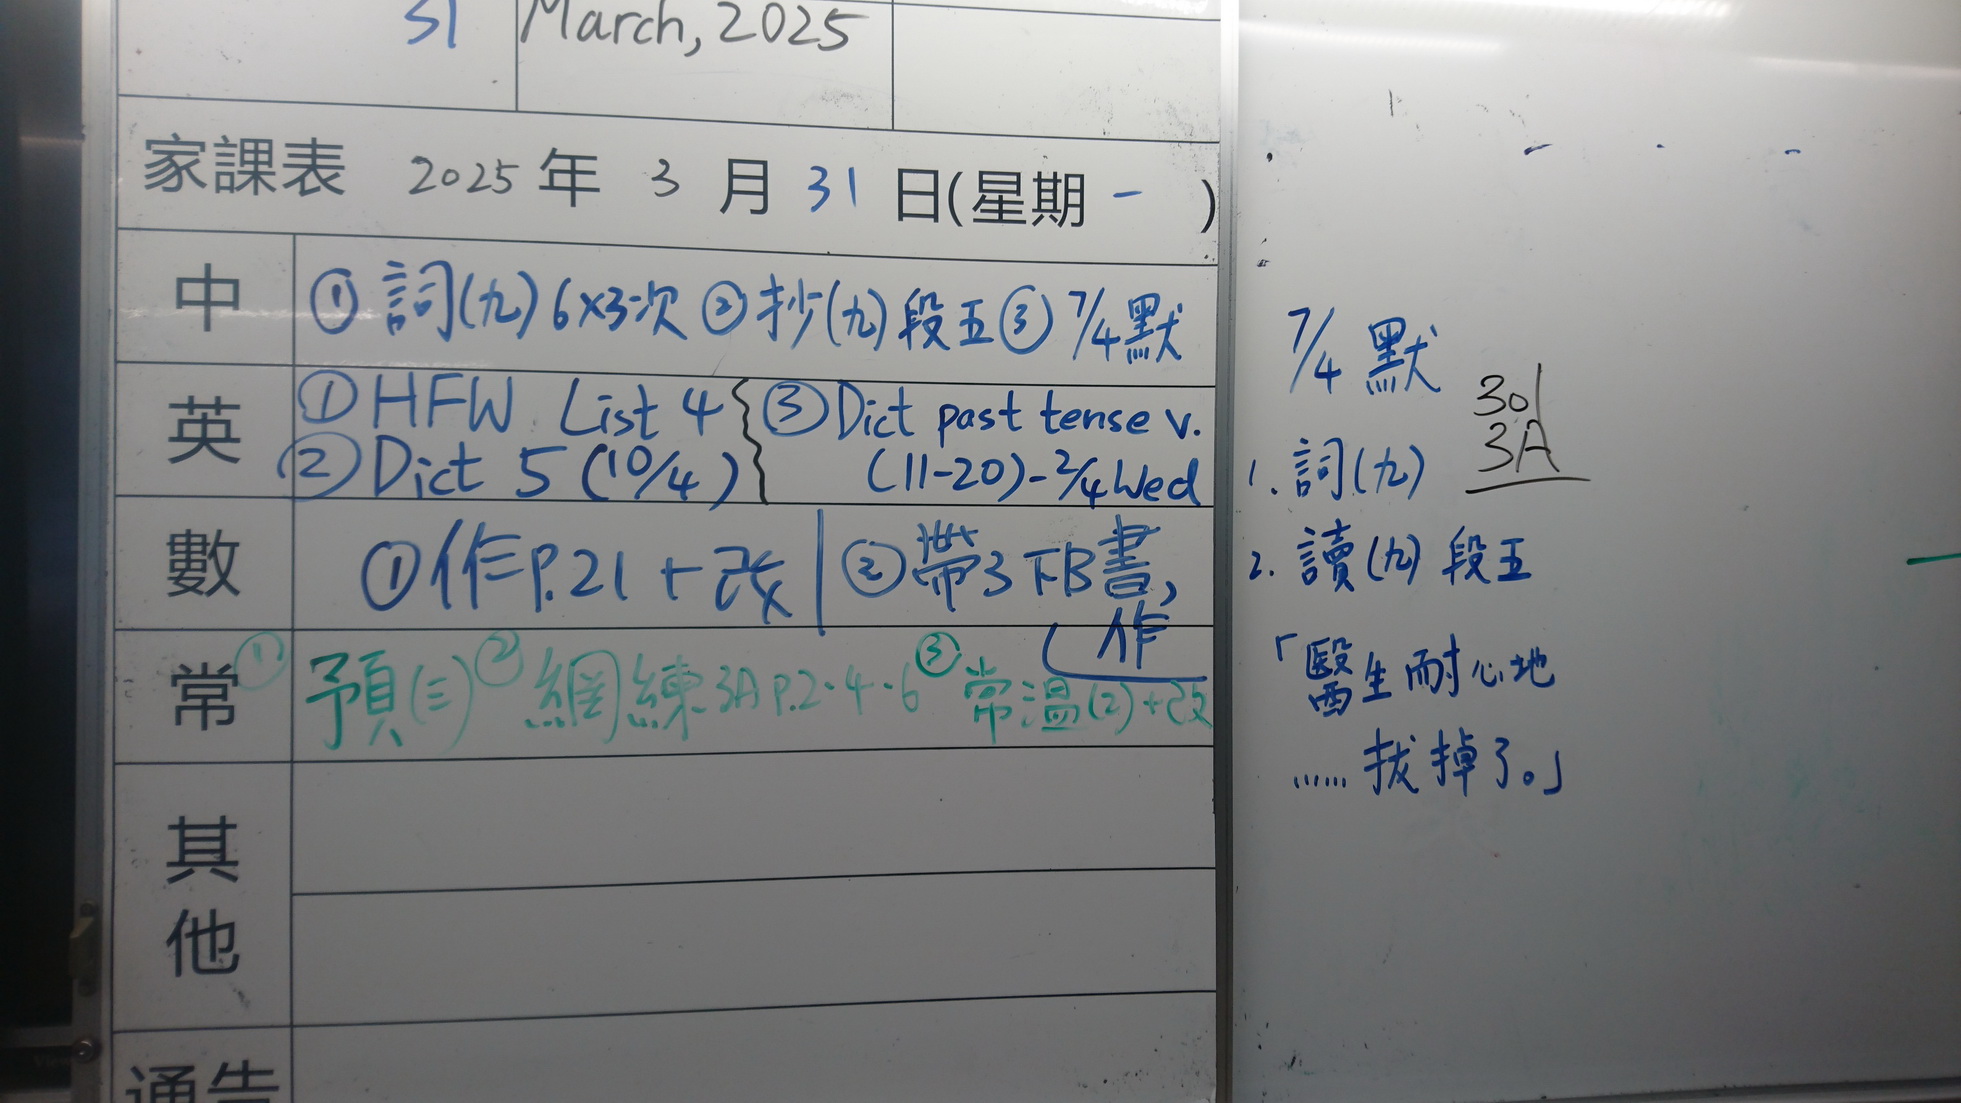 31 March, 2025
家課表 2025 年 3 月 31 日(星期 一 )
中 ① 詞(九) 6x3次 ② 抄(九) 段五 ③ 7/4 默
英 ① HFW List 4 ③ Dict past tense v.
② Dict 5 (10/4) (11-20) - 2/4 Wed
數 ① 作 P.21 + 改 ② 帶 3下B 書,
作
常 ① 預(三) ② 網練 3A P.2·4·6 ③ 常溫(2)+改
其他
通告
7/4 默
301
3A
1. 詞(九)
2. 讀(九) 段五
「醫生耐心地
...... 拔掉了。」